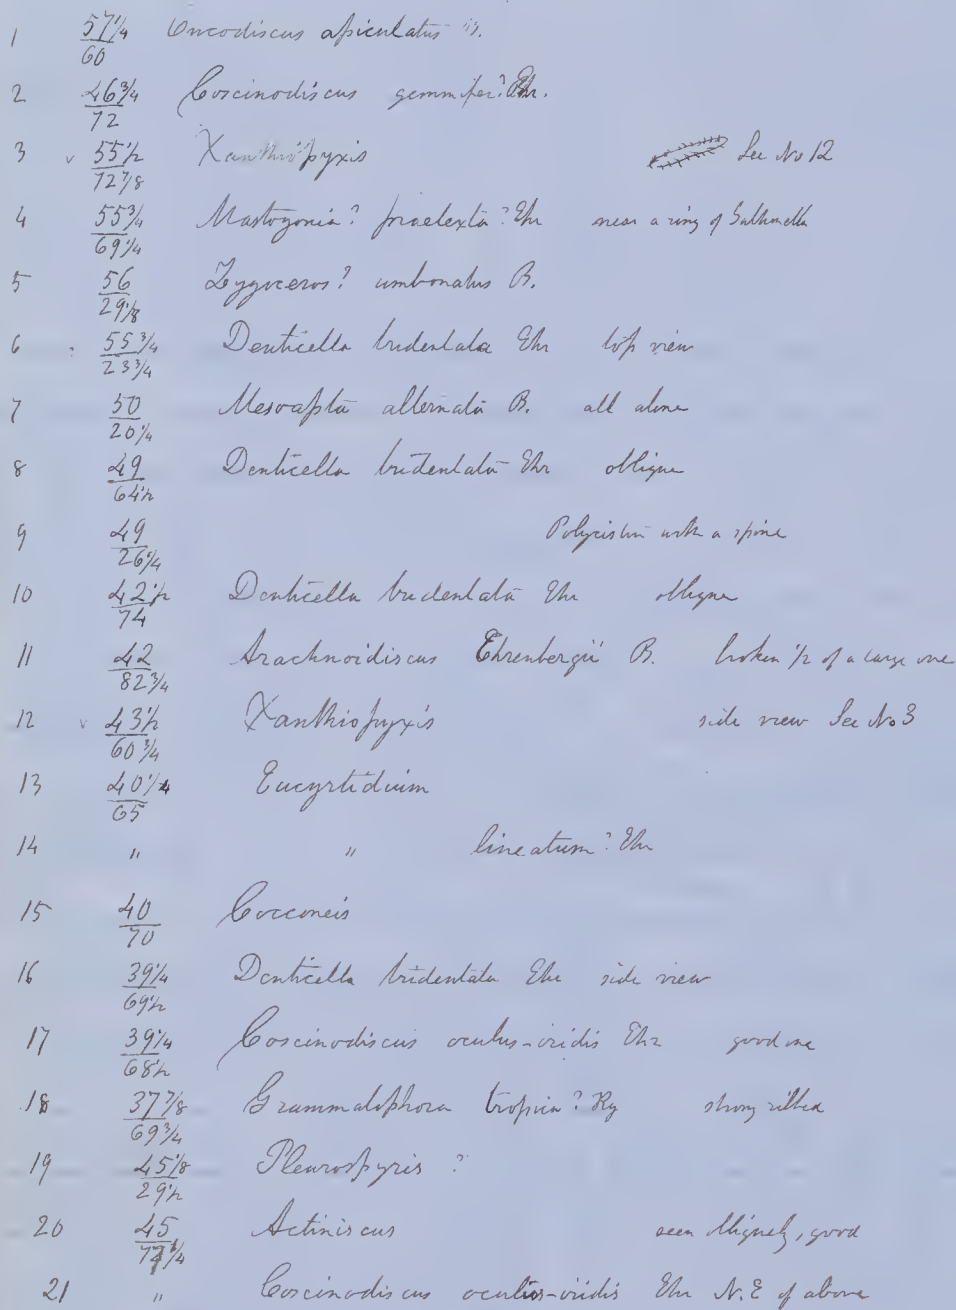 1 57 1/4 / 60 Omcodiscus apiculatus B.
2 46 3/4 / 72 Coscinodiscus gemmifer? Ehr.
3 v 55 1/2 / 72 7/8 Xanthiopyxis See No 12
4 55 3/4 / 69 1/4 Mastogonia? praetexta? Ehr near a ring of
5 56 / 29 1/8 Zygoceros? umbonatus B.
6 55 3/4 / 23 3/4 Denticella tridentata Ehr top view
7 50 / 20 1/4 Mesoasta alternata B. all alone
8 49 / 64 1/2 Denticella tridentata Ehr oblique
9 49 / 26 1/4 Polycistin with a spine
10 42 1/2 / 74 Denticella tridentata Ehr oblique
11 42 / 82 3/4 Arachnoidiscus Ehrenbergii B. broken 1/2 of a large one
12 v 43 1/2 / 60 3/4 Xanthiopyxis side view See No 3
13 40 1/4 / 65 Eucyrtidium
14 " " lineatum? Ehr
15 40 / 70 Cocconeis
16 39 1/4 / 69 1/2 Denticella tridentata Ehr side view
17 39 1/4 / 68 1/2 Coscinodiscus oculus-iridis Ehr good one
18 37 7/8 / 69 3/4 Grammatophora tropica? Kg strong ribbed
19 45 1/8 / 29 1/2 Pleurospyris ?
20 45 / 77 1/4 Actiniscus seen obliquely, good
21 " Coscinodiscus oculus-iridis Ehr N.E of above